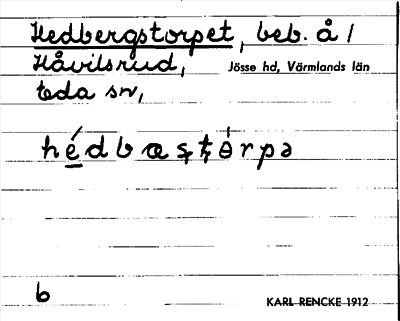 Hedbergstorpet, beb. å /
Håvilsrud, Jösse hd, Värmlands län
Eda sn,
hédbæșț̣ɵ́rpə
b
KARL RENCKE 1912